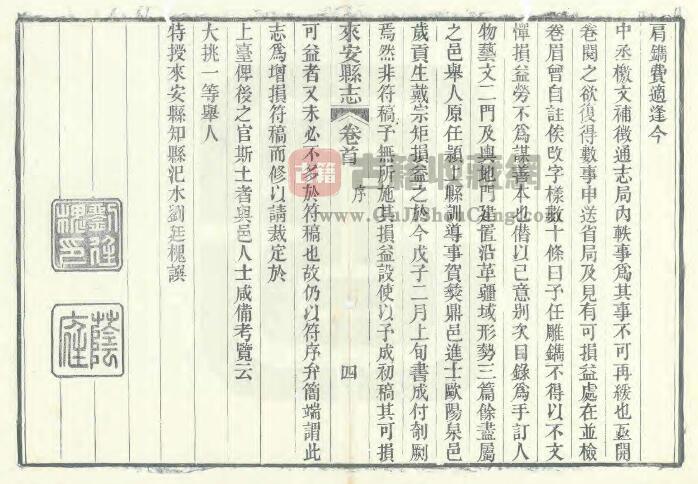 肩鐫費適逢今
中丞檄文補徵通志局內軼事爲其事不可再緩也亟開
卷閱之欲復得數事申送省局及見有可損益處在並檢
卷眉曾自註俟改字樣數十條曰予任雕鐫不得以不文
憚損益勞不爲謀善本也借以己意別次目錄爲手訂人
物藝文二門及輿地門建置沿革疆域形勢三篇餘盡屬
之邑舉人原任潁上縣訓導事賀燮鼎邑進士歐陽泉邑
歲貢生戴宗矩損益之於今戊子二月上旬書成付剞劂
焉然非符稿予無所施其損益設使以予成初稿其可損
來安縣志 卷首 序 四
可益者又未必不多於符稿也故仍以符序弁簡端謂此
志爲增損符稿而修以請裁定於
上臺俾後之官斯土者與邑人士咸備考覽云
大挑一等舉人
特授來安縣知縣汜水劉廷槐譔
劉廷槐印
蔭庭
古籍 古籍收藏網
www.GuJiShouCang.com